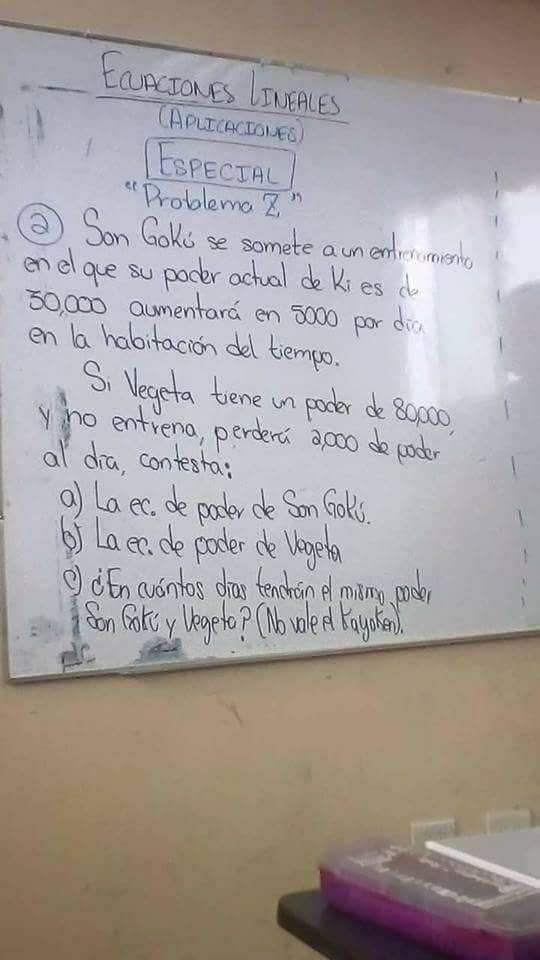 ECUACIONES LINEALES
(APLICACIONES)
ESPECIAL
"Problema Z"
② Son Gokú se somete a un entrenamiento
en el que su poder actual de Ki es de
50,000 aumentará en 5000 por día
en la habitación del tiempo.
Si Vegeta tiene un poder de 80,000,
y no entrena, perderá 2,000 de poder
al día, contesta:
a) La ec. de poder de Son Gokú.
b) La ec. de poder de Vegeta
c) ¿En cuántos días tendrán el mismo poder
Son Gokú y Vegeta? (No vale el Kayoken).